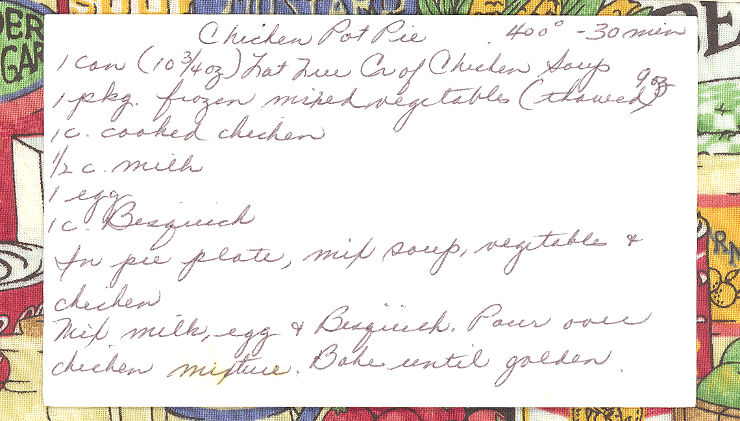 Chicken Pot Pie 400° - 30 min
1 can (10 3/4 oz) Fat Free Cr of Chicken Soup
1 pkg. frozen mixed vegetables (thawed) 9 oz
1 c. cooked chicken
1/2 c. milk
1 egg
1 c. Bisquick
In pie plate, mix soup, vegetables &
chicken
Mix milk, egg & Bisquick. Pour over
chicken mixture. Bake until golden.